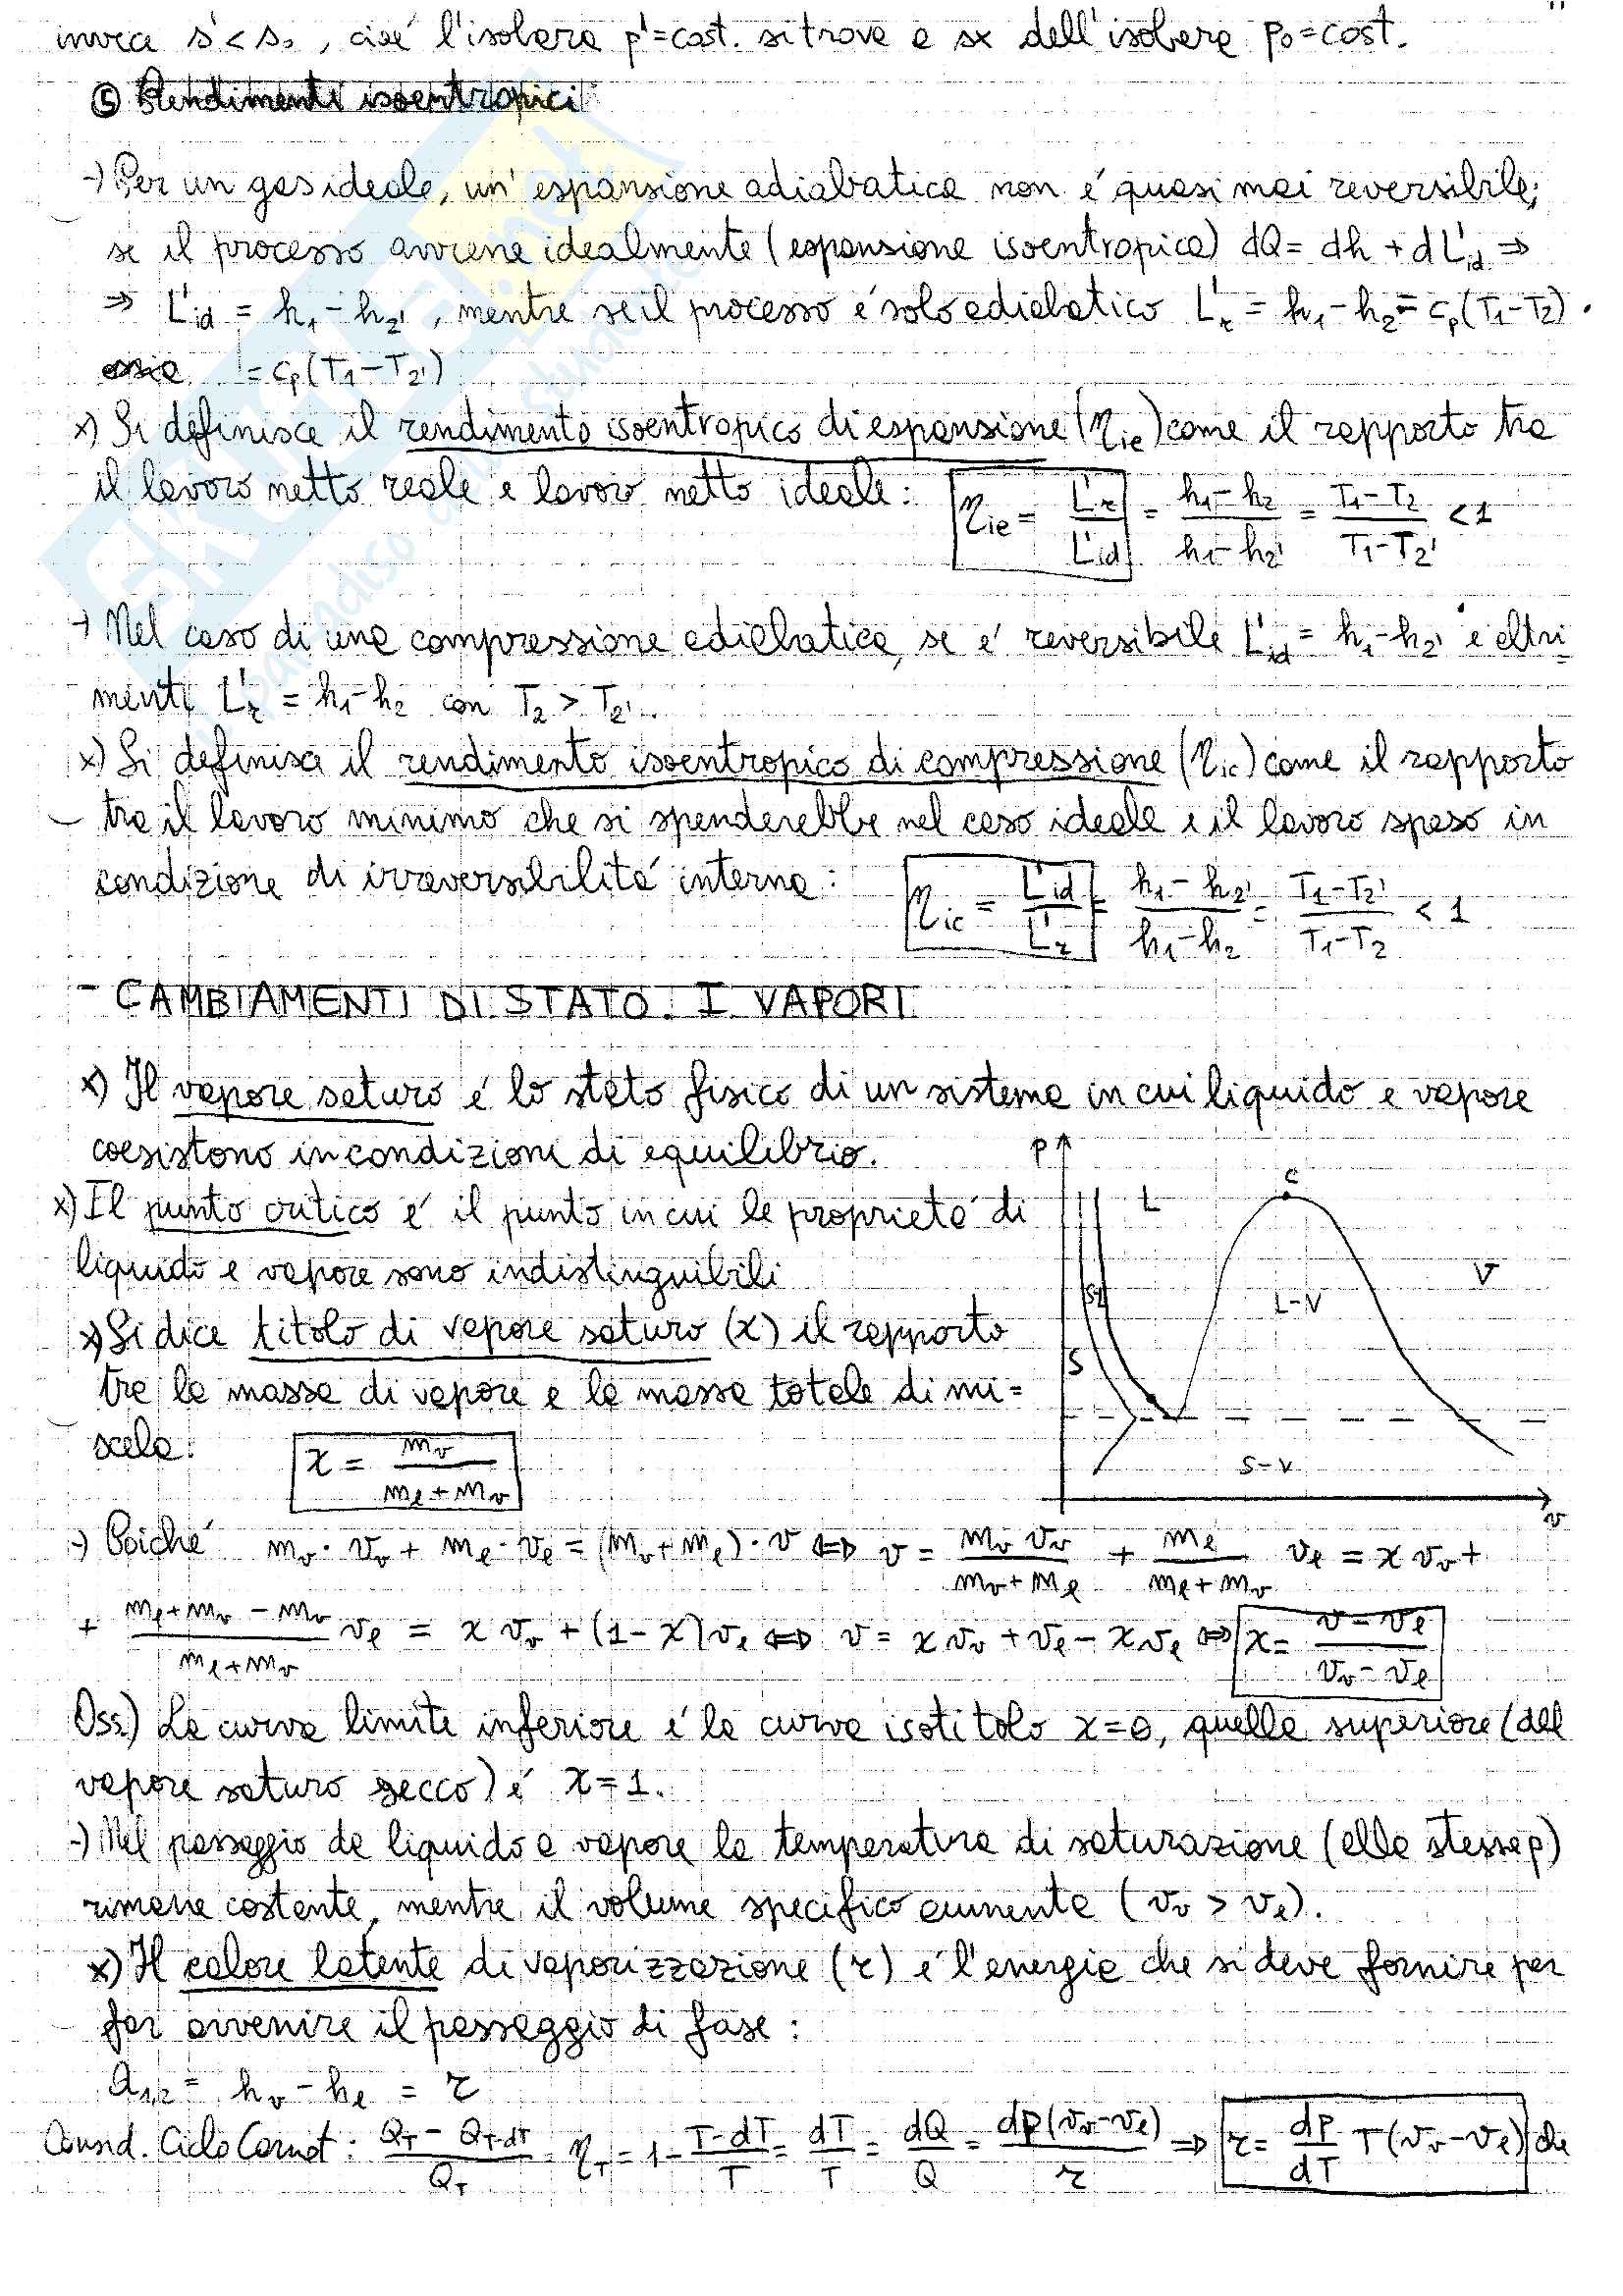 invece s'<s₀, cioé l'isobara p'=cost. si trova a sx dell'isobara p₀=cost.
⑤ Rendimenti isoentropici
→) Per un gas ideale, un'espansione adiabatica non é quasi mai reversibile;
se il processo avviene idealmente (espansione isoentropica) dQ = dh + dL'id ⇒
⇒ L'id = h₁-h₂', mentre se il processo é solo adiabatico L'r = h₁-h₂ = cp(T₁-T₂).
= cp(T₁-T₂')
x) Si definisce il rendimento isoentropico di espansione (ηie) come il rapporto tra
il lavoro netto reale e lavoro netto ideale: ηie = L'r/L'id = (h₁-h₂)/(h₁-h₂') = (T₁-T₂)/(T₁-T₂') < 1
→ Nel caso di una compressione adiabatica, se é reversibile L'id = h₁-h₂' e altri=
menti L'r = h₁-h₂ con T₂ > T₂'.
x) Si definisce il rendimento isoentropico di compressione (ηic) come il rapporto
tra il lavoro minimo che si spenderebbe nel caso ideale e il lavoro speso in
condizione di irreversibilitá interna: ηic = L'id/L'r = (h₁-h₂')/(h₁-h₂) = (T₁-T₂')/(T₁-T₂) < 1
- CAMBIAMENTI DI STATO. I VAPORI
x) Il vapore saturo é lo stato fisico di un sistema in cui liquido e vapore
coesistono in condizioni di equilibrio.
x) Il punto critico é il punto in cui le proprietá di
liquido e vapore sono indistinguibili
x) Si dice titolo di vapore saturo (x) il rapporto
tra la massa di vapore e la massa totale di mi=
scela: x = mv/(ml+mv)
p
C
L
V
SL
L-V
S
S-V
v
→) Poiché mv·vv + ml·vl = (mv+ml)·v ⇔ v = mv vv/(mv+ml) + ml/(ml+mv) vl = x vv +
+ (ml+mv-mv)/(ml+mv) vl = x vv + (1-x)vl ⇔ v = x vv + vl - x vl ⇔ x = (v-vl)/(vv-vl)
Oss.) La curva limite inferiore é la curva isotitolo x=0, quella superiore (del
vapore saturo secco) é x=1.
→) Nel passaggio da liquido a vapore la temperatura di saturazione (alla stessa p)
rimane costante, mentre il volume specifico aumenta (vv > vl).
x) Il calore latente di vaporizzazione (r) é l'energia che si deve fornire per
far avvenire il passaggio di fase:
Q₁,₂ = hv - hl = r
Consid. Ciclo Carnot: (QT - QT-dT)/QT = ηT = 1 - (T-dT)/T = dT/T = dQ/Q = dp(vv-vl)/r ⇒ r = dp/dT T(vv-vl) che